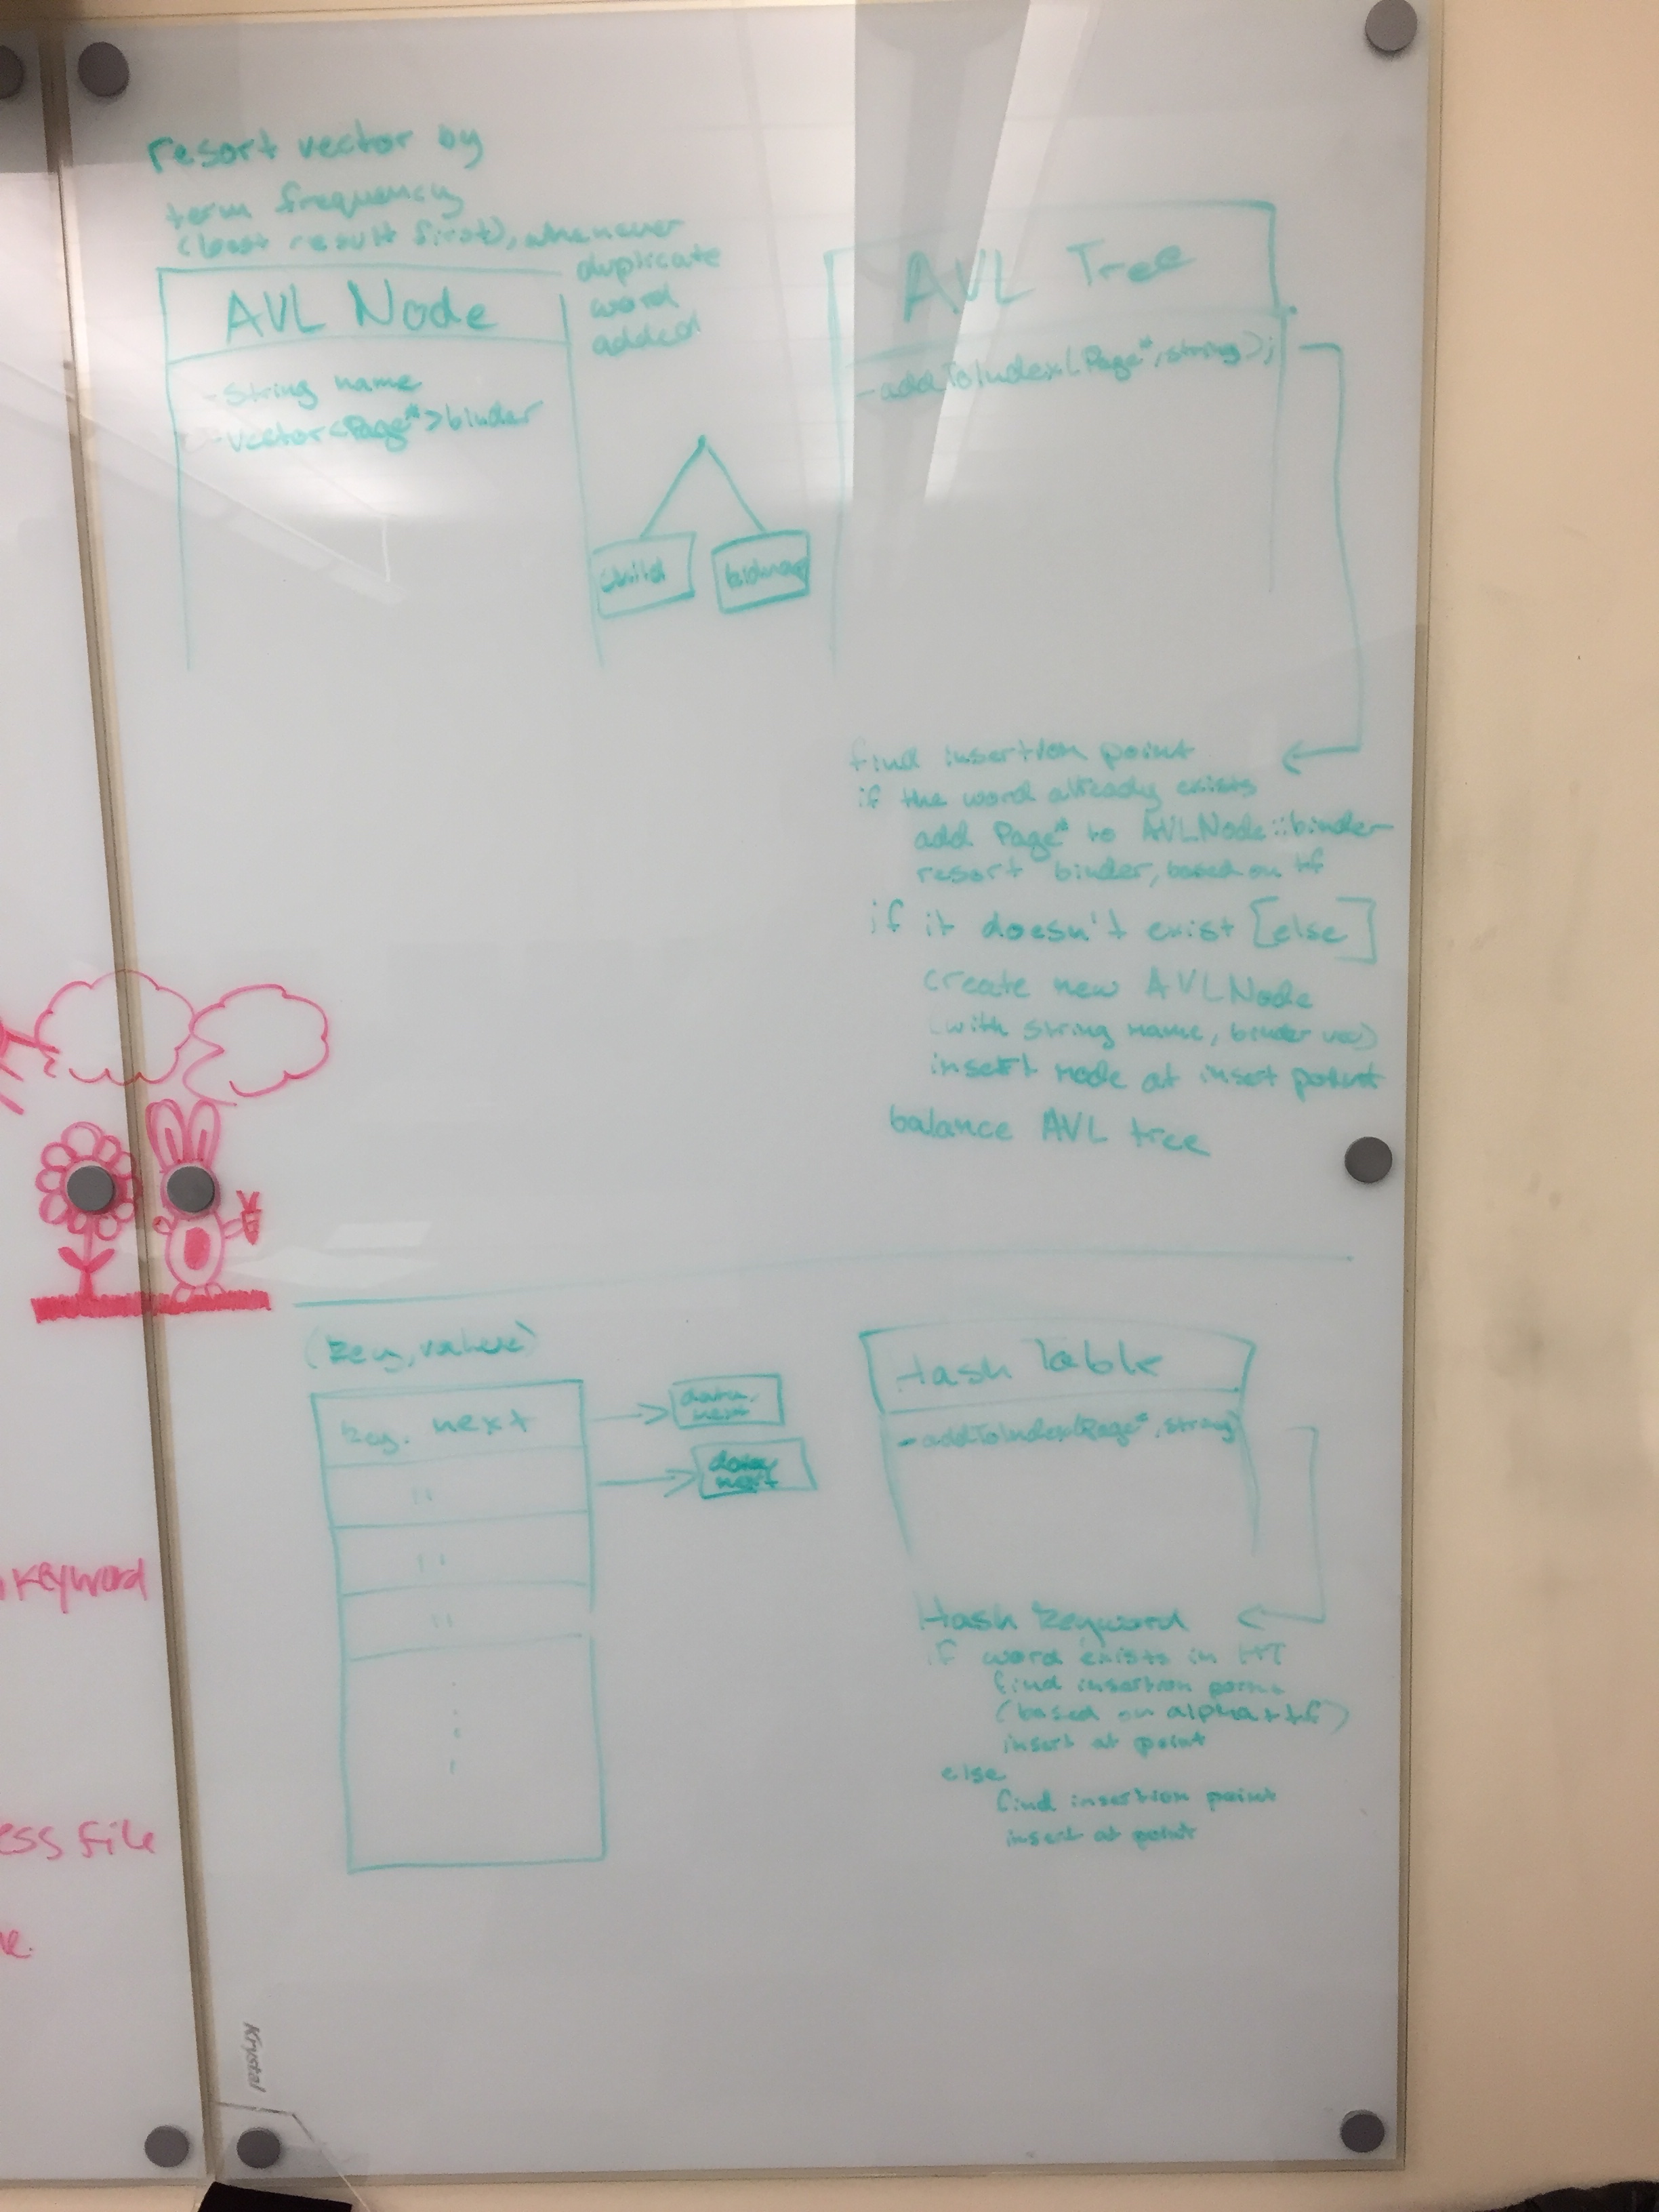 resort vector by
term frequency
(best result first), whenever
duplicate
word
added
AVL Node
-string name
-vector<Page*>binder
child
AVL Tree
-addToIndex(Page*,string);
find insertion point
if the word already exists
add Page* to AVLNode::binder
resort binder, based on tf
if it doesn't exist [else]
create new AVLNode
(with string name, binder vec)
insert node at insert point
balance AVL tree
(key, value)
key. next
"
"
"
data.
next
data
next
Hash Table
-addToIndex(Page*,string)
Hash keyword
if word exists in HT
find insertion point
(based on alpha + tf)
insert at point
else
find insertion point
insert at point
keyword
ess file
Krystal